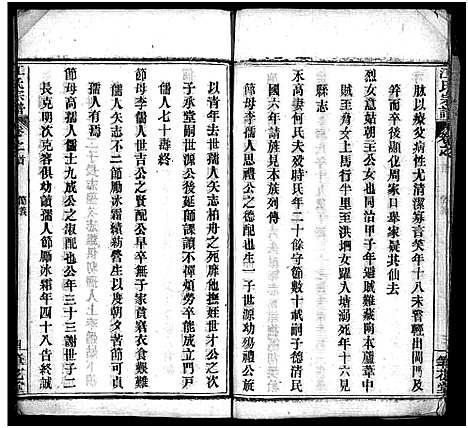 肱以療父病性尤清潔寡言笑年十八未嘗輕出閫門及
笄而卒後少顯化周家日葉家疑其仙去
烈女意姑朝王公女同治甲子年遇賊難藏南本蘆葦中
賊至勇女上馬行半里至洪堋女躍入塘溺死年十六見
縣志
永高妻何氏夫歿時氏年二十餘守節數十載嗣子德清民
國六年請旌見本族列傳
節母李孺人恩禮公之德配也生一子世源幼殤禮公旋
以青年去世孺人矢柏舟之死靡他撫姪世吉公之次
子承堂嗣世源公後延師課讀不憚煩勞卒能成立門戶
孺人七十壽終
節母李孺人世吉公之賢配公早卒無子家貧窮衣食艱難
孺人矢志不二節勵冰霜績紡營生以度朝夕苦節可貞
孺人有焉
節母高孺人世士九成公之淑配也公年三十三謝世子二
長克明次克容俱幼齡孺人節勵冰霜年四十八告終誠
節義